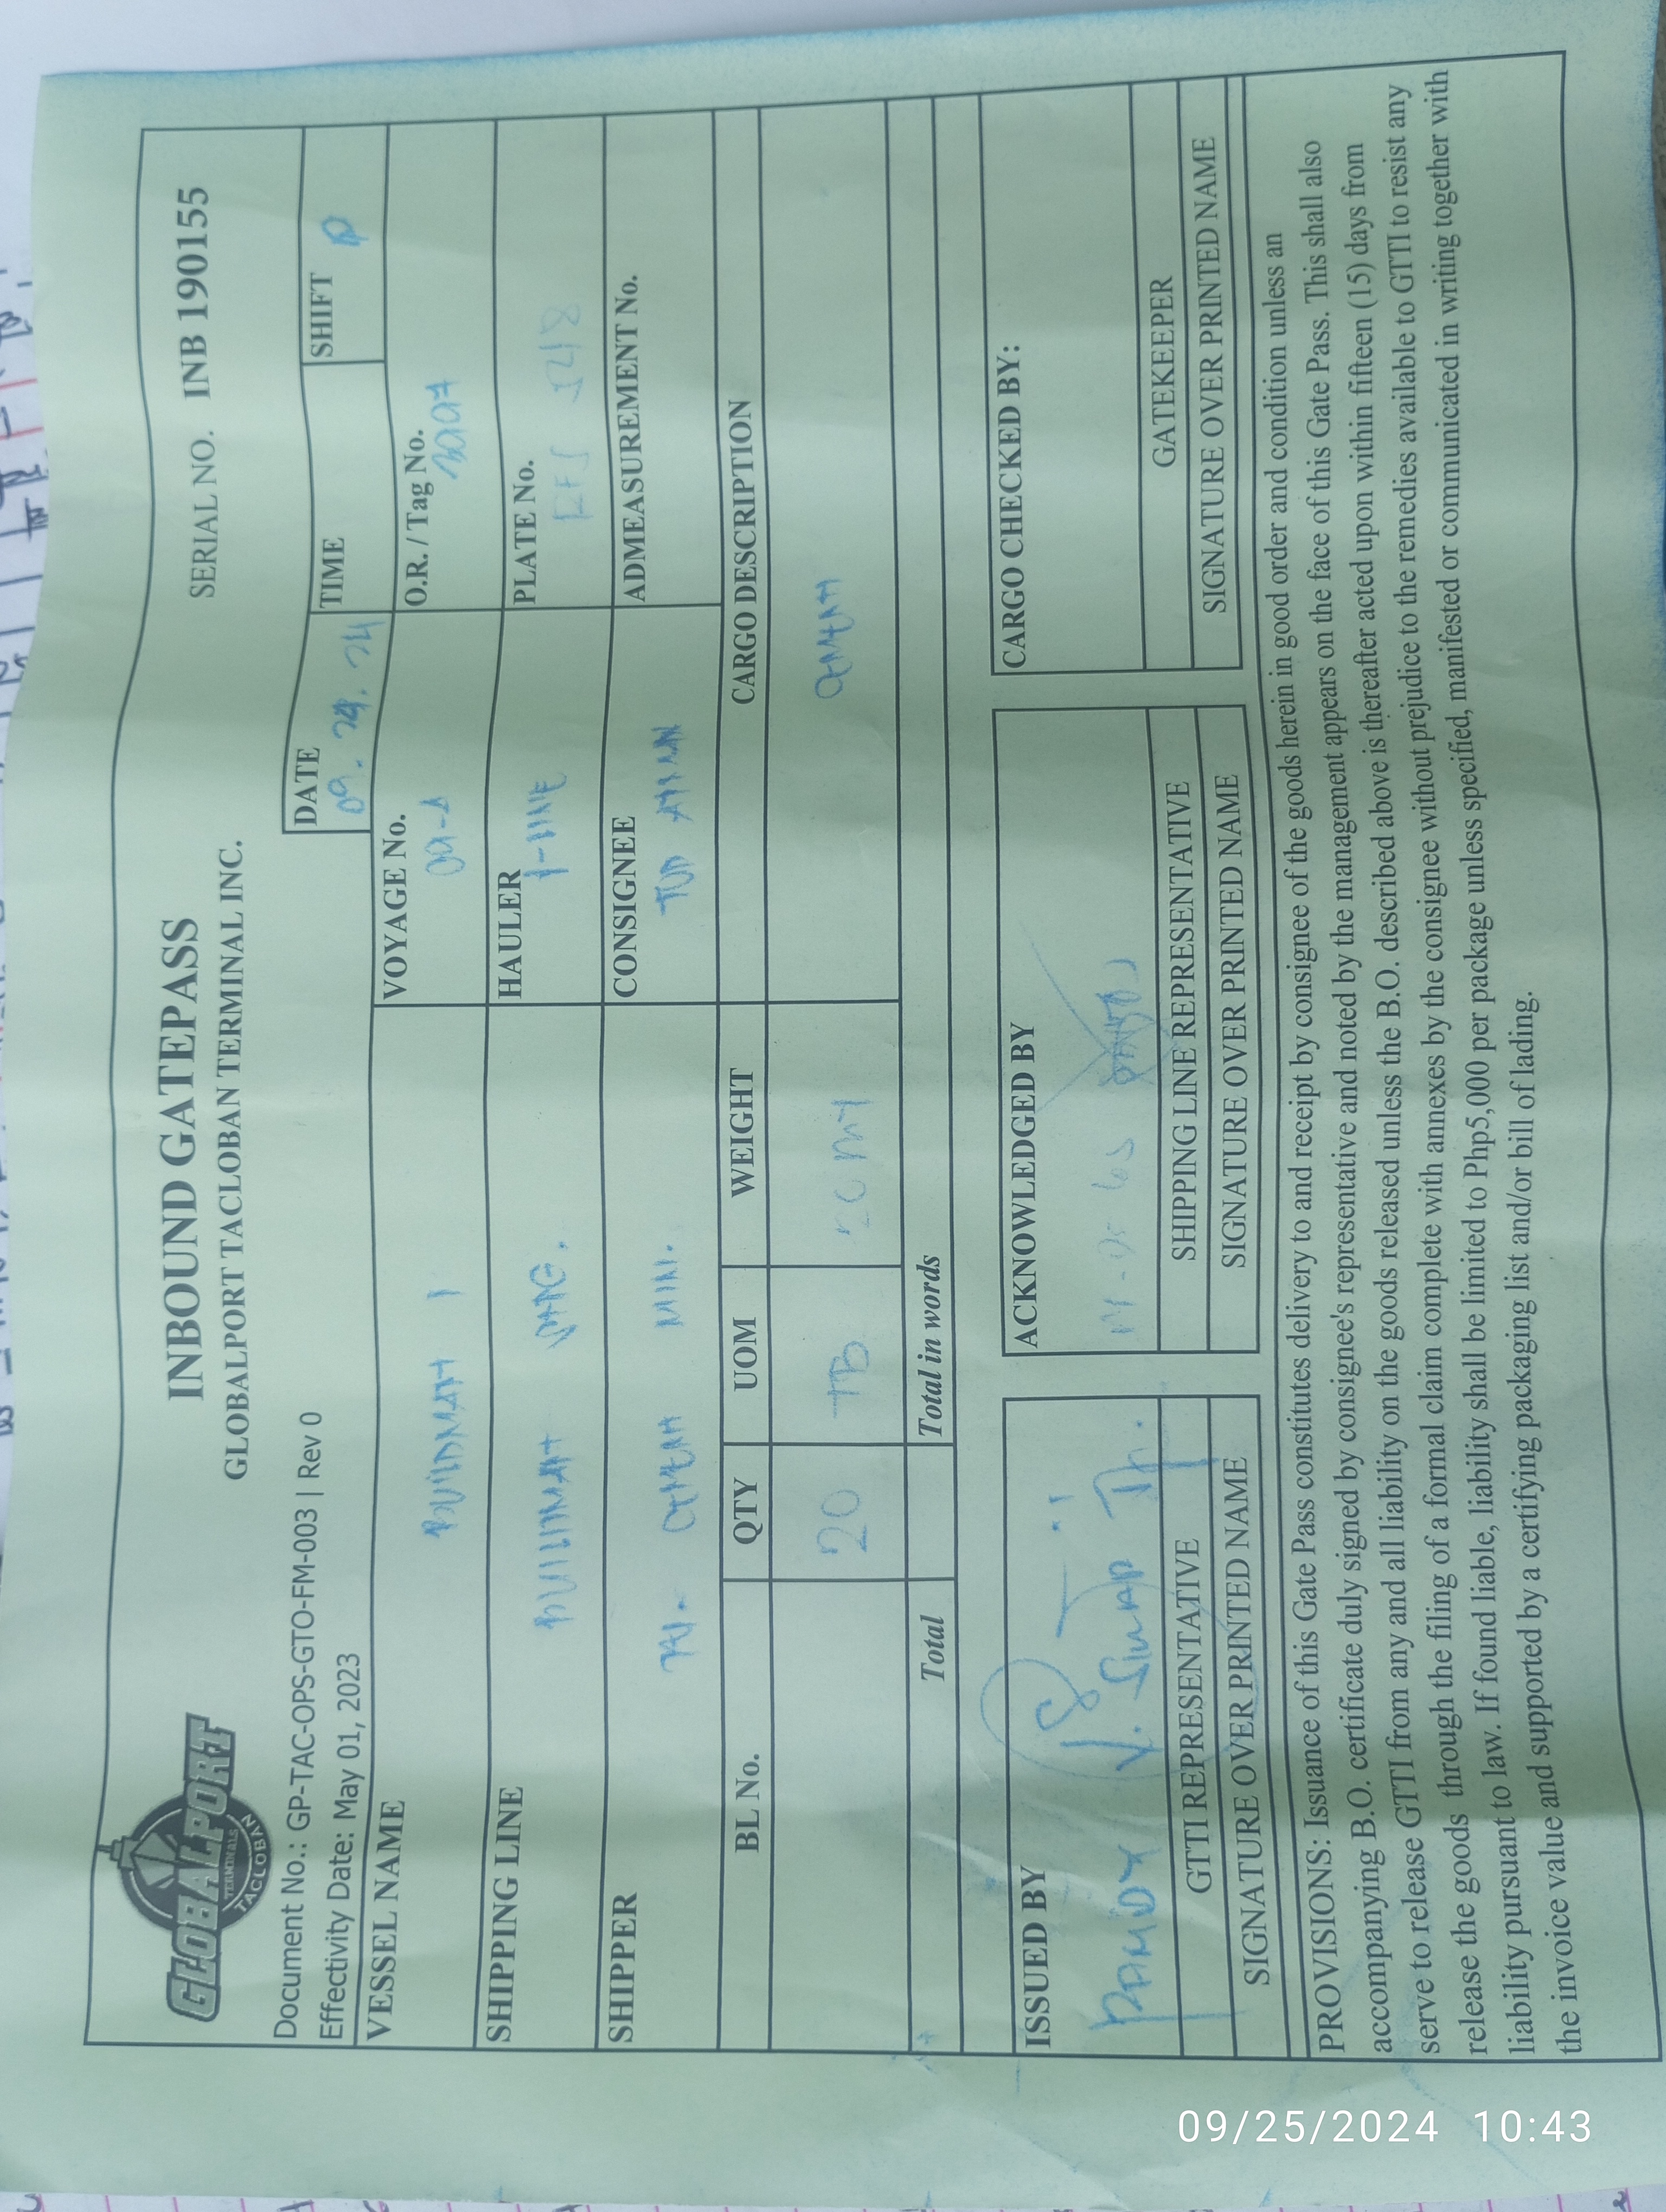 GLOBALPORT
TERMINALS
TACLOBAN
INBOUND GATEPASS
GLOBALPORT TACLOBAN TERMINAL INC.
SERIAL NO. INB 190155
Document No.: GP-TAC-OPS-GTO-FM-003 | Rev 0
Effectivity Date: May 01, 2023
DATE 09. 24. 24
TIME
SHIFT
VESSEL NAME
BUILDMAT 1
VOYAGE No.
O.R. / Tag No.
SHIPPING LINE
HAULER
PLATE No.
SHIPPER
CONSIGNEE
ADMEASUREMENT No.
BL No. QTY UOM WEIGHT CARGO DESCRIPTION
20 TB 20 MT
Total Total in words
ISSUED BY
ACKNOWLEDGED BY
CARGO CHECKED BY:
GTTI REPRESENTATIVE
SIGNATURE OVER PRINTED NAME
SHIPPING LINE REPRESENTATIVE
SIGNATURE OVER PRINTED NAME
GATEKEEPER
SIGNATURE OVER PRINTED NAME
PROVISIONS: Issuance of this Gate Pass constitutes delivery to and receipt by consignee of the goods herein in good order and condition unless an
accompanying B.O. certificate duly signed by consignee's representative and noted by the management appears on the face of this Gate Pass. This shall also
serve to release GTTI from any and all liability on the goods released unless the B.O. described above is thereafter acted upon within fifteen (15) days from
release the goods through the filing of a formal claim complete with annexes by the consignee without prejudice to the remedies available to GTTI to resist any
liability pursuant to law. If found liable, liability shall be limited to Php5,000 per package unless specified, manifested or communicated in writing together with
the invoice value and supported by a certifying packaging list and/or bill of lading.
09/25/2024 10:43